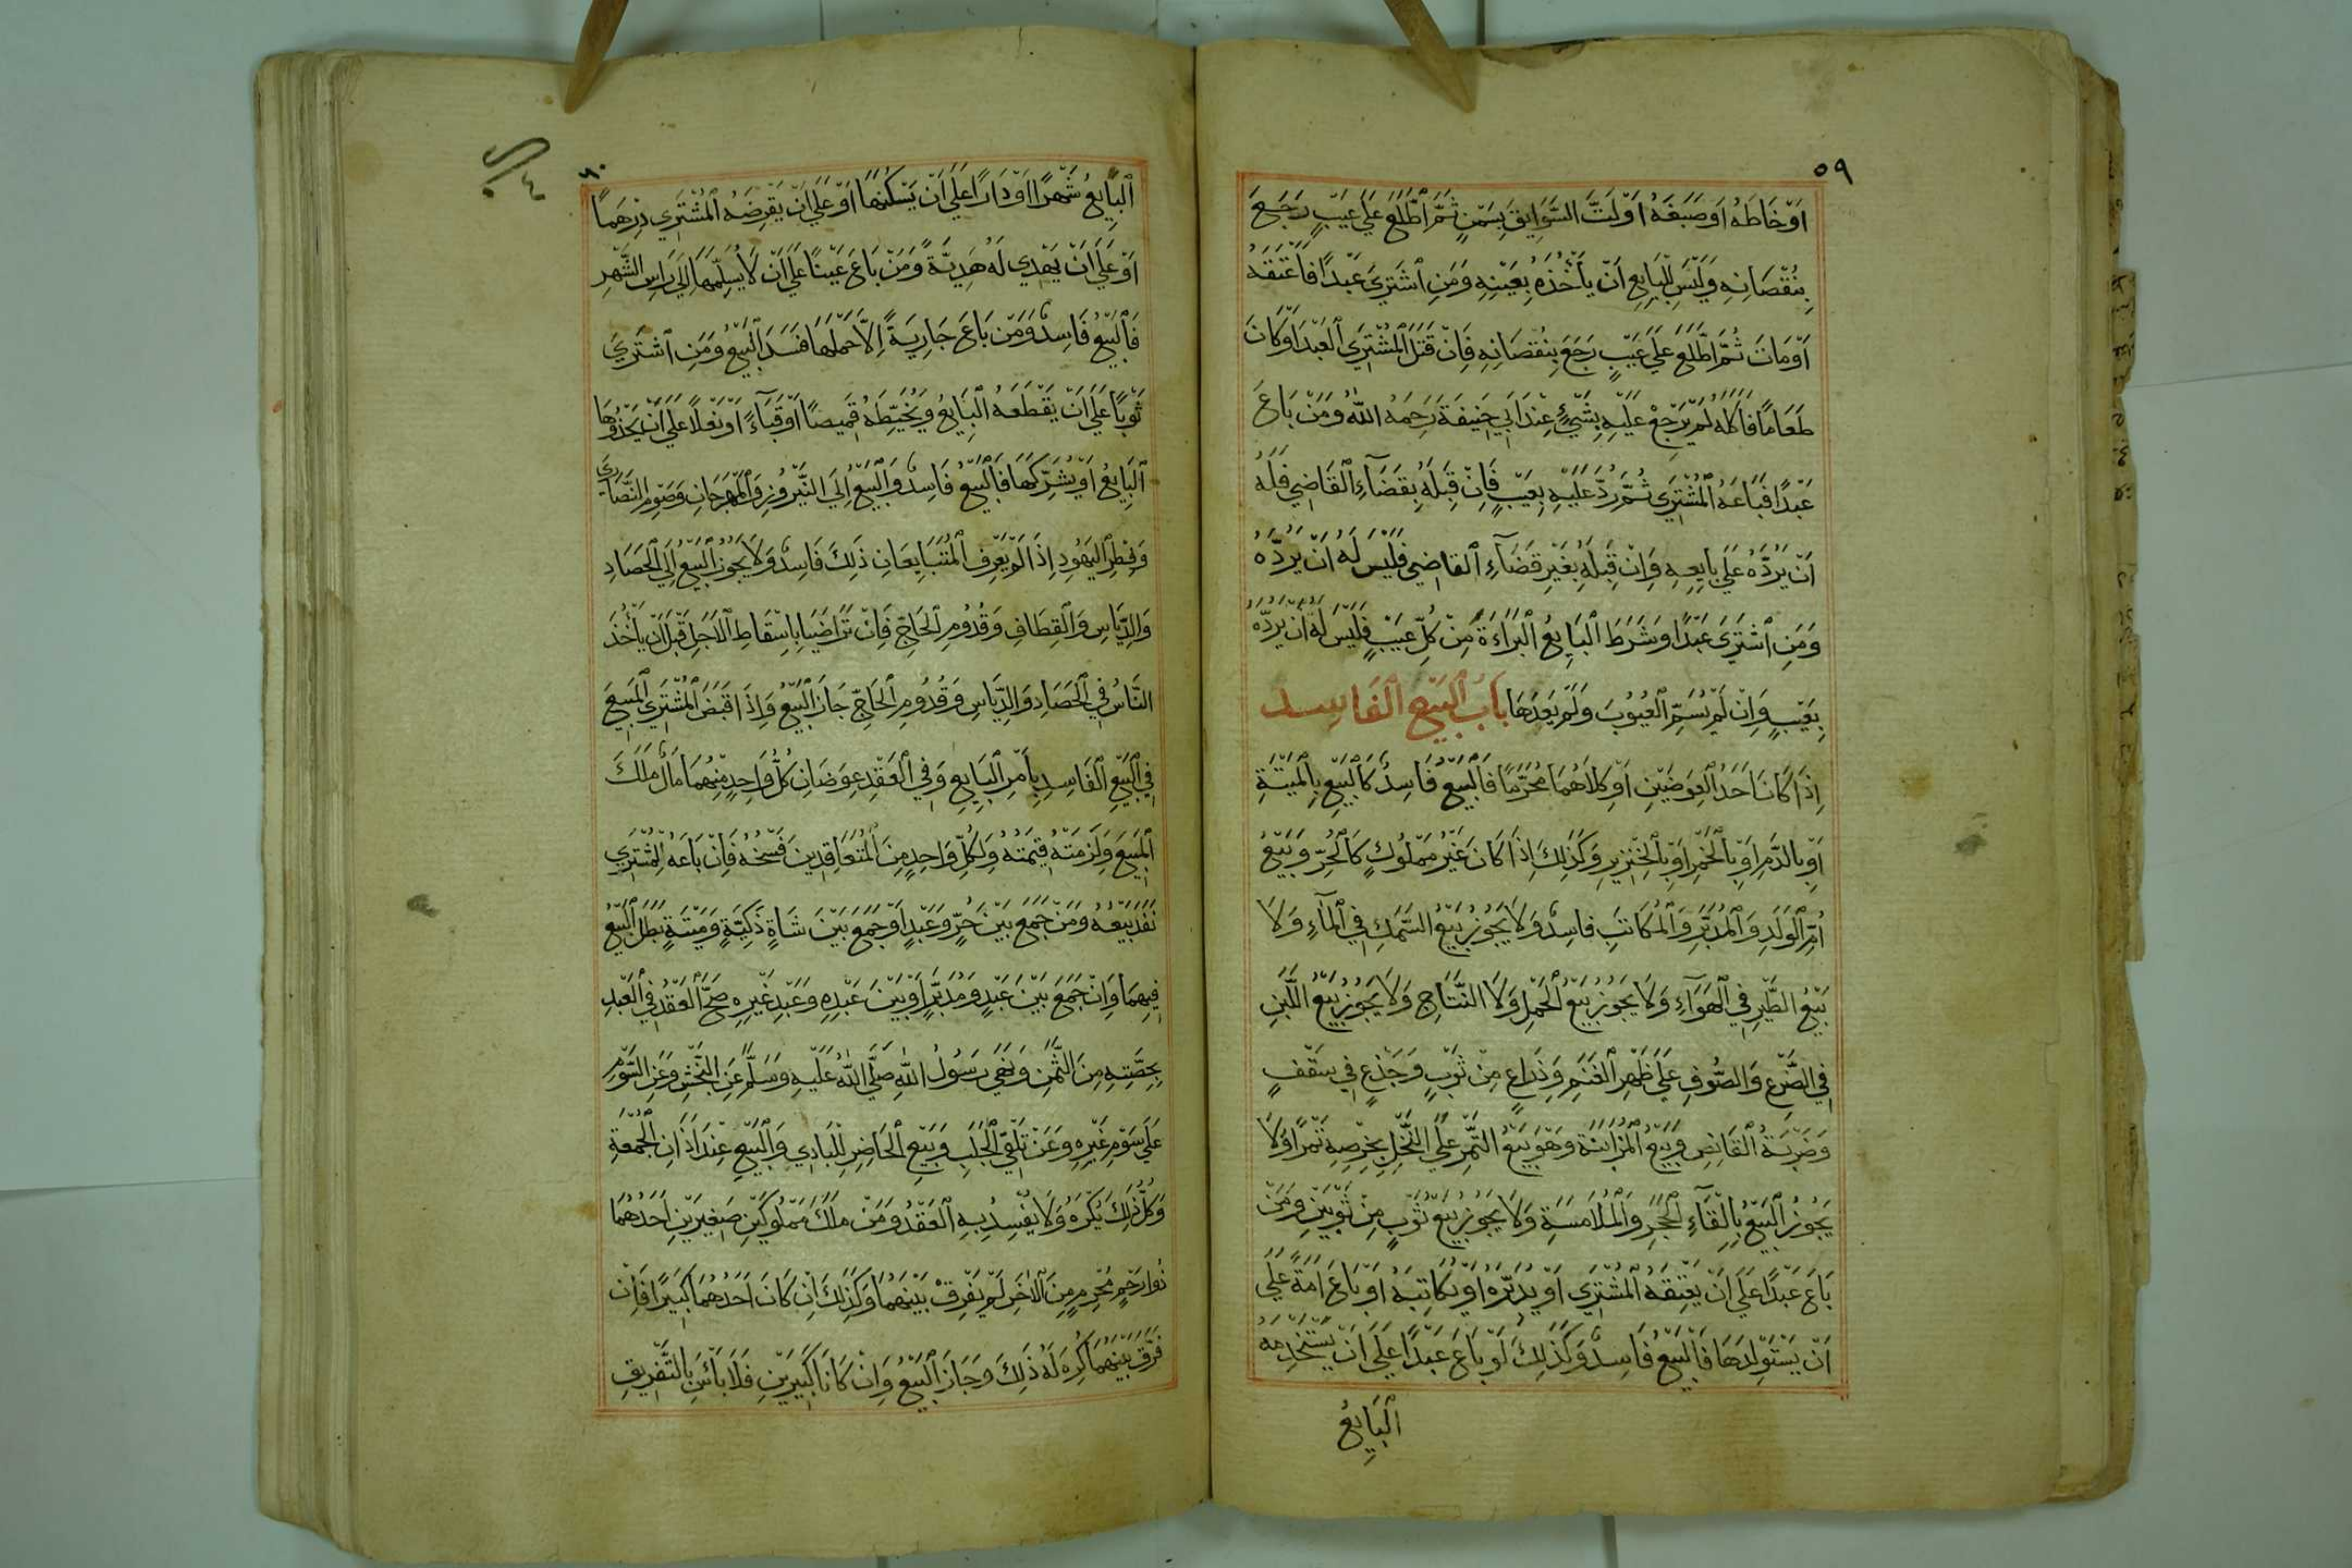 ٥٩
اَوْ خَاطَهُ اَوْ صَبَغَهُ اَوْ لَتَّ السَّوِيقَ بِسَمْنٍ ثُمَّ اطَّلَعَ عَلَى عَيْبٍ رَجَعَ
بِنُقْصَانِهِ وَلَيْسَ لِلْبَايِعِ اَنْ يَأْخُذَهُ بِعَيْنِهِ وَمَنِ اشْتَرَى عَبْدًا فَاَعْتَقَهُ
اَوْ مَاتَ ثُمَّ اطَّلَعَ عَلَى عَيْبٍ رَجَعَ بِنُقْصَانِهِ فَاِنْ قَتَلَ الْمُشْتَرِي الْعَبْدَ اَوْ كَانَ
طَعَامًا فَاَكَلَهُ لَمْ يَرْجِعْ عَلَيْهِ بِشَيْءٍ عِنْدَ اَبِي حَنِيفَةَ رَحِمَهُ اللّٰهُ وَمَنْ بَاعَ
عَبْدًا فَبَاعَهُ الْمُشْتَرِي ثُمَّ رُدَّ عَلَيْهِ بِعَيْبٍ فَاِنْ قَبِلَهُ بِقَضَآءِ الْقَاضِي فَلَهُ
اَنْ يَرُدَّهُ عَلَى بَايِعِهِ وَاِنْ قَبِلَهُ بِغَيْرِ قَضَآءِ الْقَاضِي فَلَيْسَ لَهُ اَنْ يَرُدَّهُ
وَمَنِ اشْتَرَى عَبْدًا وَشَرَطَ الْبَايِعُ الْبَرَاءَةَ مِنْ كُلِّ عَيْبٍ فَلَيْسَ لَهُ اَنْ يَرُدَّهُ
بِعَيْبٍ وَاِنْ لَمْ يُسَمِّ الْعُيُوبَ وَلَمْ يَعُدَّهَا بَابُ الْبَيْعِ الْفَاسِدِ
اِذَا كَانَ اَحَدُ الْعِوَضَيْنِ اَوْ كِلَاهُمَا مُحَرَّمًا فَالْبَيْعُ فَاسِدٌ كَالْبَيْعِ بِالْمَيْتَةِ
اَوْ بِالدَّمِ اَوْ بِالْخَمْرِ اَوْ بِالْخِنْزِيرِ وَكَذَلِكَ اِذَا كَانَ غَيْرَ مَمْلُوكٍ كَالْحُرِّ وَبَيْعُ
اُمِّ الْوَلَدِ وَالْمُدَبَّرِ وَالْمُكَاتَبِ فَاسِدٌ وَلَا يَجُوزُ بَيْعُ السَّمَكِ فِي الْمَآءِ وَلَا
بَيْعُ الطَّيْرِ فِي الْهَوَآءِ وَلَا يَجُوزُ بَيْعُ الْحَمْلِ وَلَا النَّتَاجِ وَلَا يَجُوزُ بَيْعُ اللَّبَنِ
فِي الضَّرْعِ وَالصُّوفِ عَلَى ظَهْرِ الْغَنَمِ وَذِرَاعٍ مِنْ ثَوْبٍ وَجَذْعٍ فِي سَقْفٍ
وَضَرْبَةُ الْقَانِصِ وَبَيْعُ الْمُزَابَنَةِ وَهُوَ بَيْعُ التَّمْرِ عَلَى النَّخْلِ بِخَرْصِهِ تَمْرًا وَلَا
يَجُوزُ الْبَيْعُ بِاِلْقَآءِ الْحَجَرِ وَالْمُلَامَسَةِ وَلَا يَجُوزُ بَيْعُ ثَوْبٍ مِنْ ثَوْبَيْنِ وَمَنْ
بَاعَ عَبْدًا عَلَى اَنْ يُعْتِقَهُ الْمُشْتَرِي اَوْ يُدَبِّرَهُ اَوْ يُكَاتِبَهُ اَوْ بَاعَ اَمَةً عَلَى
اَنْ يَسْتَوْلِدَهَا فَالْبَيْعُ فَاسِدٌ وَكَذَلِكَ لَوْ بَاعَ عَبْدًا عَلَى اَنْ يَسْتَخْدِمَهُ
الْبَايِعُ
٦٠
الْبَايِعُ شَهْرًا اَوْ دَارًا عَلَى اَنْ يَسْكُنَهَا اَوْ عَلَى اَنْ يُقْرِضَهُ الْمُشْتَرِي دِرْهَمًا
اَوْ عَلَى اَنْ يُهْدِي لَهُ هَدِيَّةً وَمَنْ بَاعَ عَيْنًا عَلَى اَنْ لَا يُسَلِّمَهَا اِلَى رَاسِ الشَّهْرِ
فَالْبَيْعُ فَاسِدٌ وَمَنْ بَاعَ جَارِيَةً اِلَّا حَمْلَهَا فَسَدَ الْبَيْعُ وَمَنِ اشْتَرَى
ثَوْبًا عَلَى اَنْ يَقْطَعَهُ الْبَايِعُ وَيُخَيِّطَهُ قَمِيصًا اَوْ قَبَآءً اَوْ نَعْلًا عَلَى اَنْ يَحْذُوهَا
الْبَايِعُ اَوْ يُشَرِّكَهَا فَالْبَيْعُ فَاسِدٌ وَالْبَيْعُ اِلَى النَّيْرُوزِ وَالْمِهْرَجَانِ وَصَوْمِ النَّصَارَى
وَفِطْرِ الْيَهُودِ اِذَا لَمْ يَعْرِفِ الْمُتَبَايِعَانِ ذَلِكَ فَاسِدٌ وَلَا يَجُوزُ الْبَيْعُ اِلَى الْحَصَادِ
وَالدِّيَاسِ وَالْقِطَافِ وَقُدُومِ الْحَاجِّ فَاِنْ تَرَاضَيَا بِاِسْقَاطِ الْاَجَلِ قَبْلَ اَنْ يَأْخُذَ
النَّاسُ فِي الْحَصَادِ وَالدِّيَاسِ وَقُدُومِ الْحَاجِّ جَازَ الْبَيْعُ وَاِذَا قَبَضَ الْمُشْتَرِي الْمَبِيعَ
فِي الْبَيْعِ الْفَاسِدِ بِاَمْرِ الْبَايِعِ وَفِي الْعَقْدِ عِوَضَانِ كُلُّ وَاحِدٍ مِنْهُمَا مَالٌ مَلَكَ
الْمَبِيعَ وَلَزِمَتْهُ قِيمَتُهُ وَلِكُلِّ وَاحِدٍ مِنَ الْمُتَعَاقِدِينَ فَسْخُهُ فَاِنْ بَاعَهُ الْمُشْتَرِي
نَفَذَ بَيْعُهُ وَمَنْ جَمَعَ بَيْنَ حُرٍّ وَعَبْدٍ اَوْ جَمَعَ بَيْنَ شَاةٍ ذَكِيَّةٍ وَمَيْتَةٍ بَطَلَ الْبَيْعُ
فِيهِمَا وَاِنْ جَمَعَ بَيْنَ عَبْدٍ وَمُدَبَّرٍ اَوْ بَيْنَ عَبْدِهِ وَعَبْدِ غَيْرِهِ صَحَّ الْعَقْدُ فِي الْعَبْدِ
بِحِصَّتِهِ مِنَ الثَّمَنِ وَنَهَى رَسُولُ اللّٰهِ صَلَّى اللّٰهُ عَلَيْهِ وَسَلَّمَ عَنِ النَّجْشِ وَعَنِ السَّوْمِ
عَلَى سَوْمِ غَيْرِهِ وَعَنْ تَلَقِّي الْجَلَبِ وَبَيْعِ الْحَاضِرِ لِلْبَادِي وَالْبَيْعِ عِنْدَ اَذَانِ الْجُمُعَةِ
وَكُلُّ ذَلِكَ يُكْرَهُ وَلَا يُفْسَدُ بِهِ الْعَقْدُ وَمَنْ مَلَكَ مَمْلُوكَيْنِ صَغِيرَيْنِ اَحَدُهُمَا
ذُوا رَحِمٍ مَحْرَمٍ مِنَ الْاٰخَرِ لَمْ يُفَرِّقْ بَيْنَهُمَا وَكَذَلِكَ اِنْ كَانَ اَحَدُهُمَا كَبِيرًا فَاِنْ
فَرَّقَ بَيْنَهُمَا كُرِهَ لَهُ ذَلِكَ وَجَازَ الْبَيْعُ وَاِنْ كَانَا كَبِيرَيْنِ فَلَا بَأْسَ بِالتَّفْرِيقِ